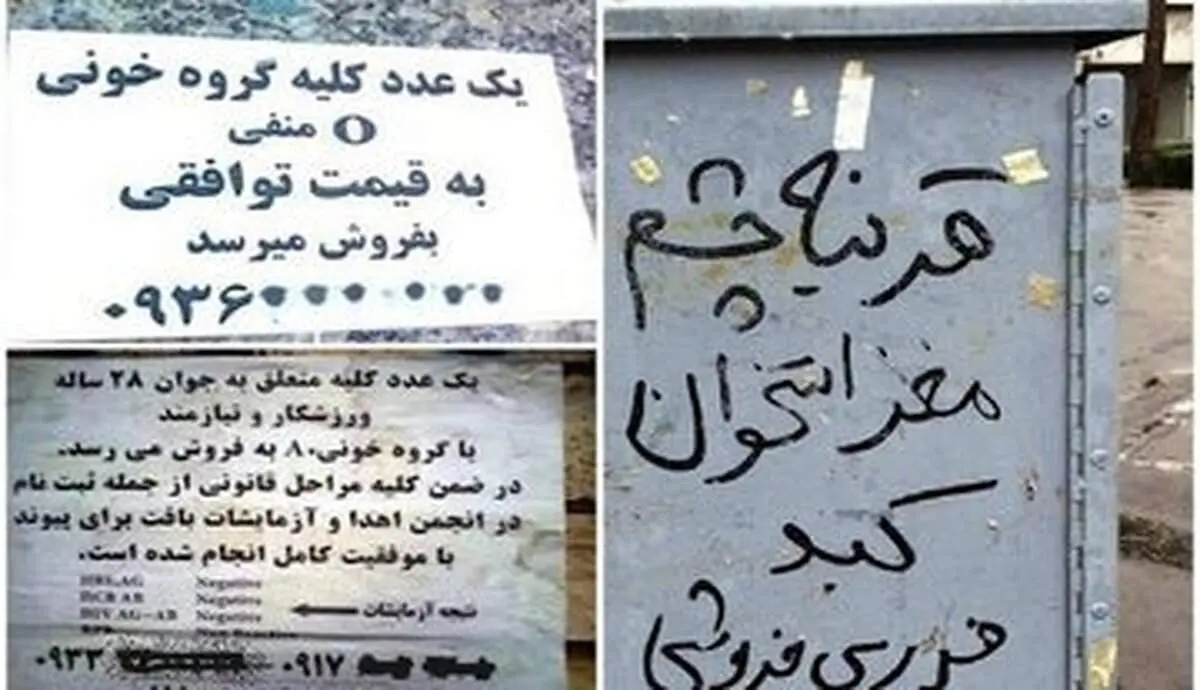 یک عدد کلیه گروه خونی
O منفی
به قیمت توافقی
بفروش میرسد
۰۹۳۶
یک عدد کلیه متعلق به جوان ۲۸ ساله
ورزشکار و نیازمند
با گروه خونی ۸۰ به فروش می رسد.
در ضمن کلیه مراحل قانونی از جمله ثبت نام
در انجمن اهدا و آزمایشات بافت برای پیوند
با موفقیت کامل انجام شده است.
HBS.AG Negative
HCB AB Negative
HIV AG-AB Negative
نتیجه آزمایشات
۰۹۳۳ ۰۹۱۷
قرنیه چشم
مغز استخوان
کبد
فروشی